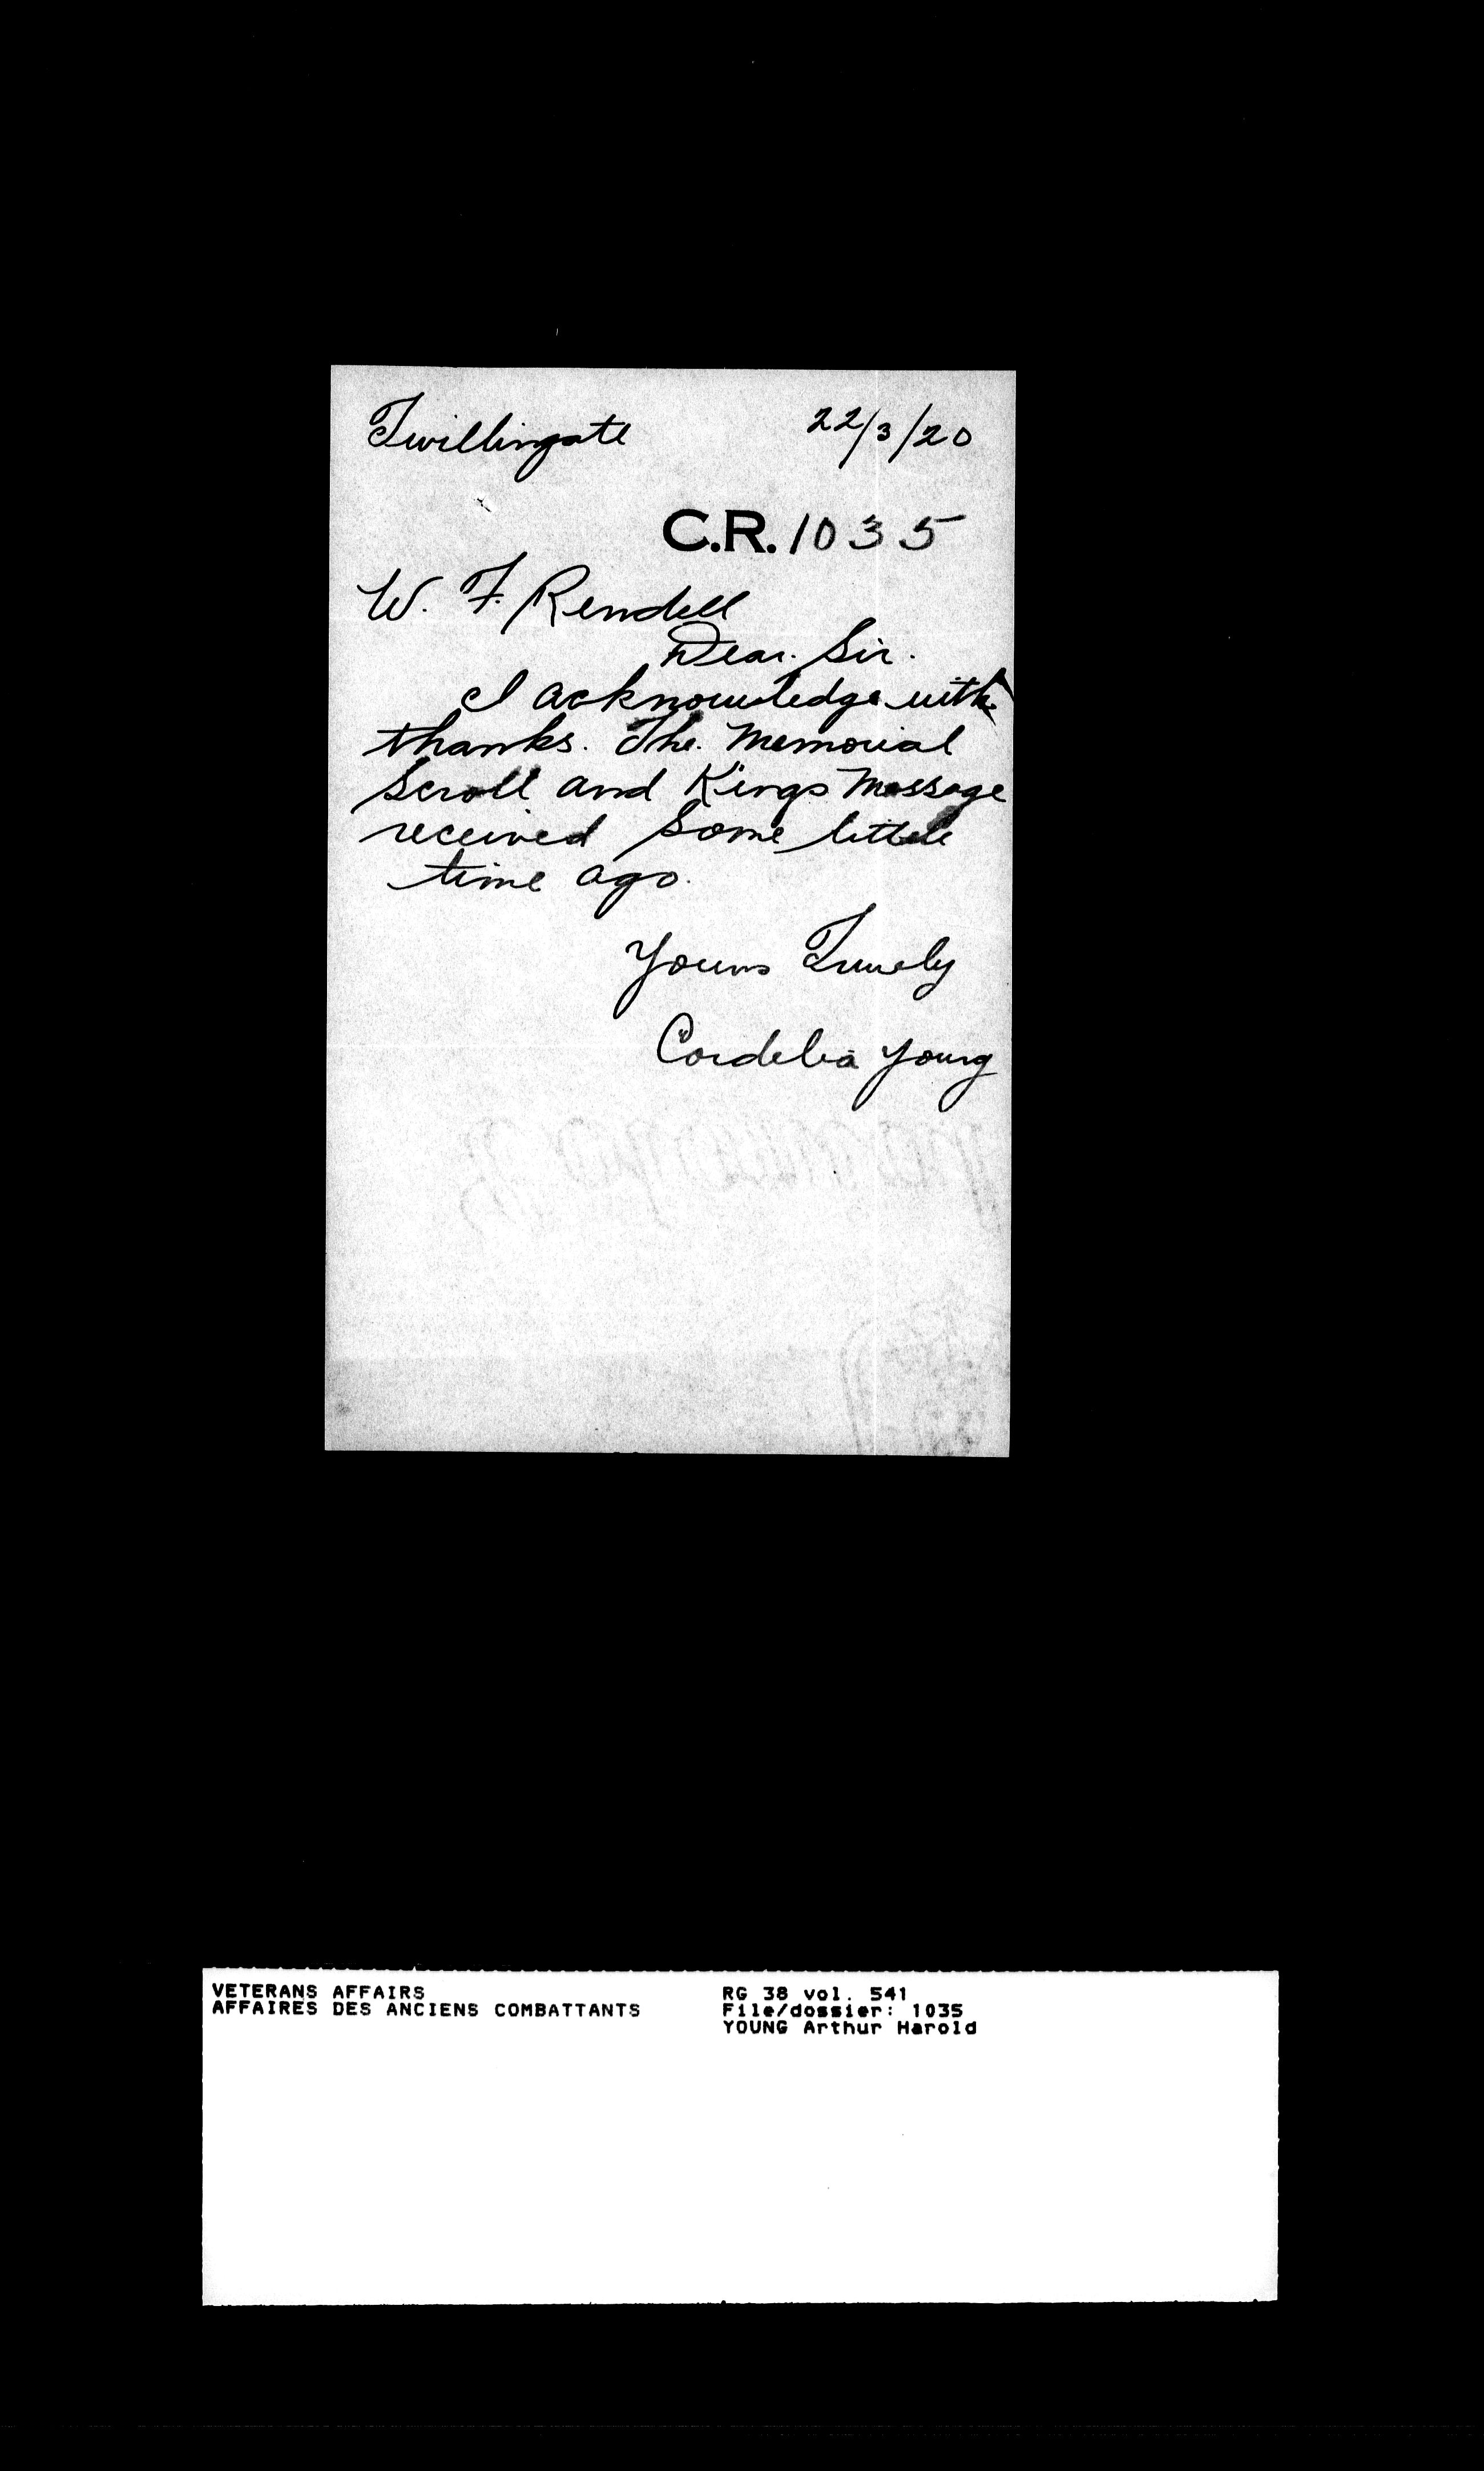 Twillingate 22/3/20
C.R. 1035
W. F. Rendell
Dear. Sir.
I acknowledge with
thanks. The. Memorial
Scroll and Kings Message
received some little
time ago.
Yours Truely
Cordelia Young
VETERANS AFFAIRS RG 38 vol. 541
AFFAIRES DES ANCIENS COMBATTANTS File/dossier: 1035
YOUNG Arthur Harold